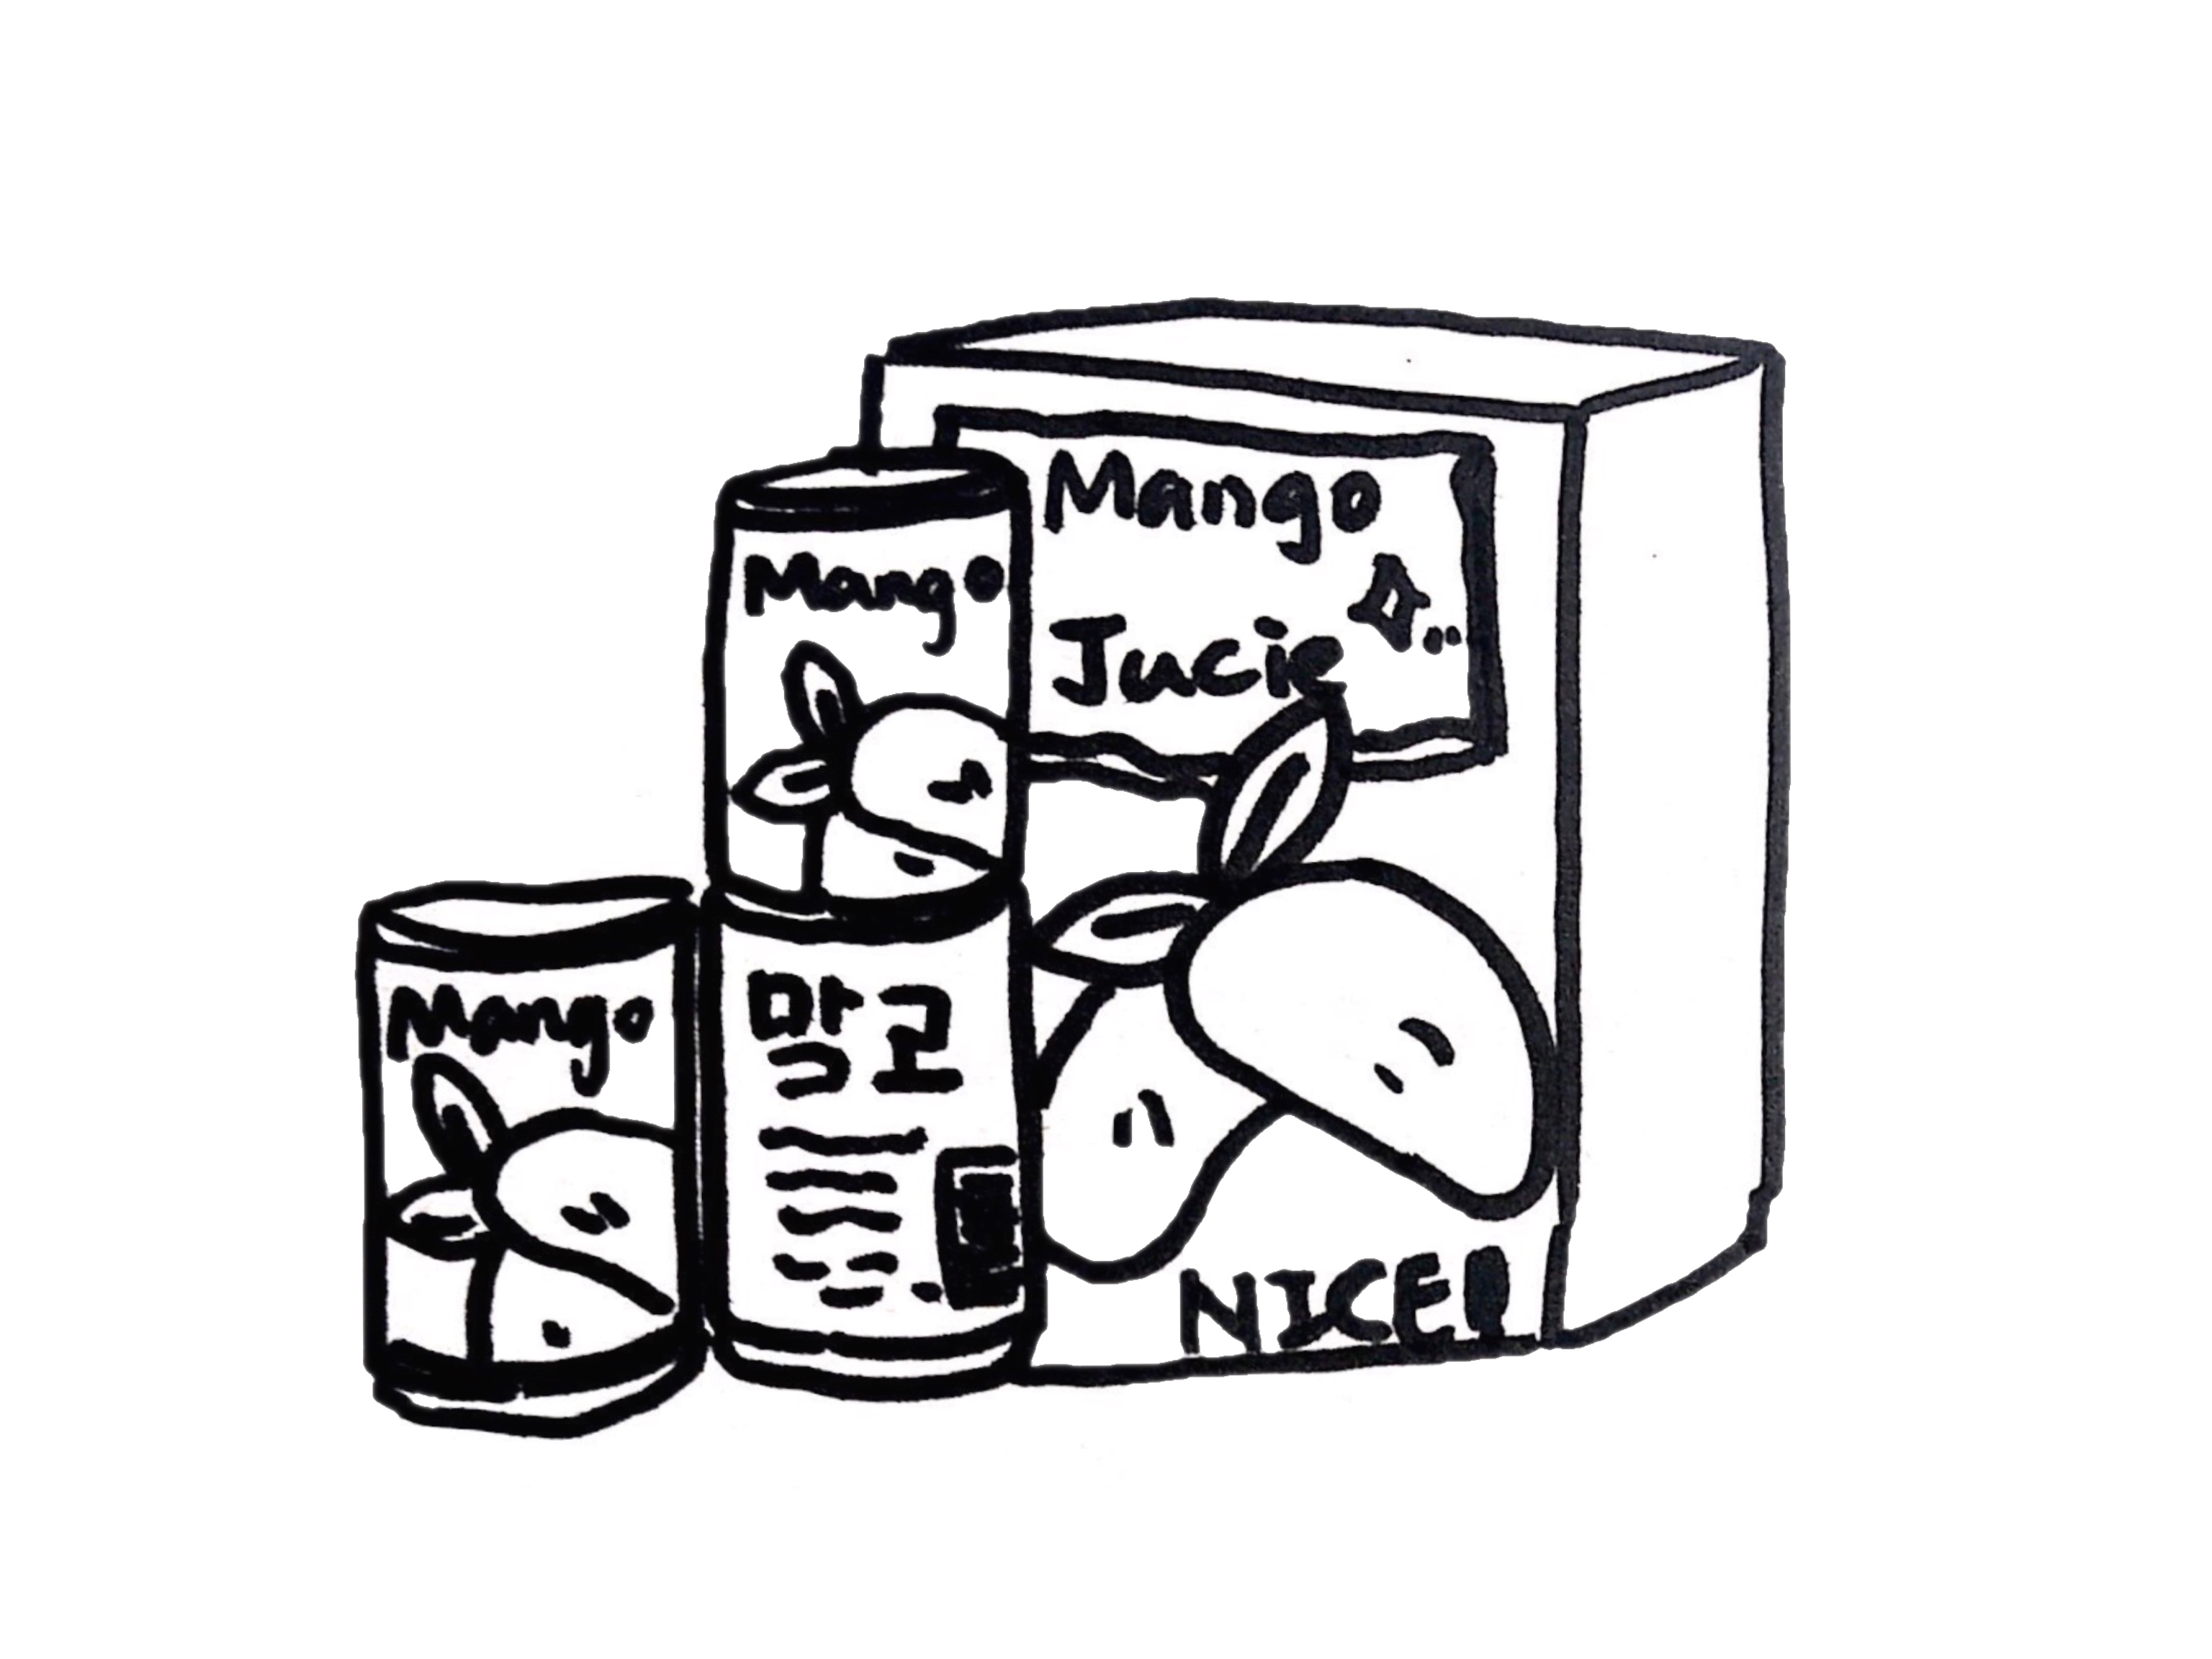 Mango
Jucie
Mango
Mango
망고
NICE!